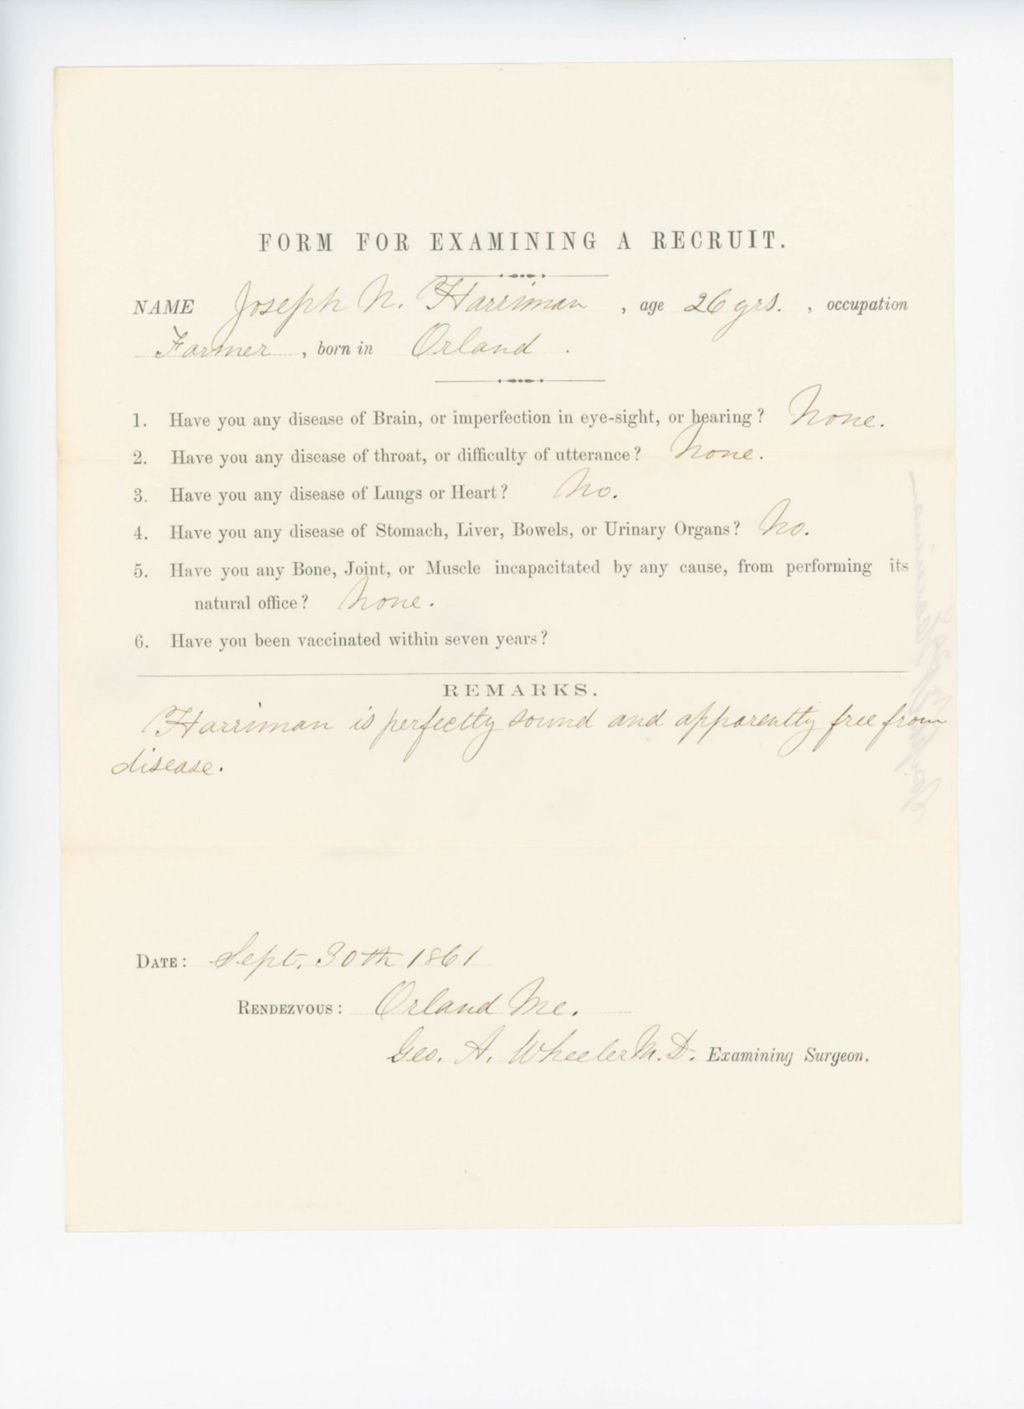 FORM FOR EXAMINING A RECRUIT.
NAME Joseph N. Harriman , age 26 yrs. , occupation
Farmer , born in Orland .
1. Have you any disease of Brain, or imperfection in eye-sight, or hearing? None.
2. Have you any disease of throat, or difficulty of utterance? None.
3. Have you any disease of Lungs or Heart? No.
4. Have you any disease of Stomach, Liver, Bowels, or Urinary Organs? No.
5. Have you any Bone, Joint, or Muscle incapacitated by any cause, from performing its
natural office? None.
6. Have you been vaccinated within seven years?
REMARKS.
Harriman is perfectly sound and apparently free from
disease.
DATE: Sept. 30th 1861
RENDEZVOUS: Orland Me.
Geo. A. Wheeler M.D. Examining Surgeon.